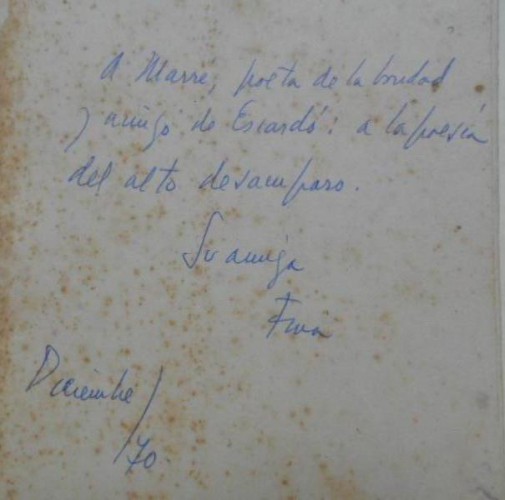 A Marre, poeta de la bondad
y amigo de Escardó: a la poesía
del alto desamparo.
Su amiga
Fina
Diciembre/
/70